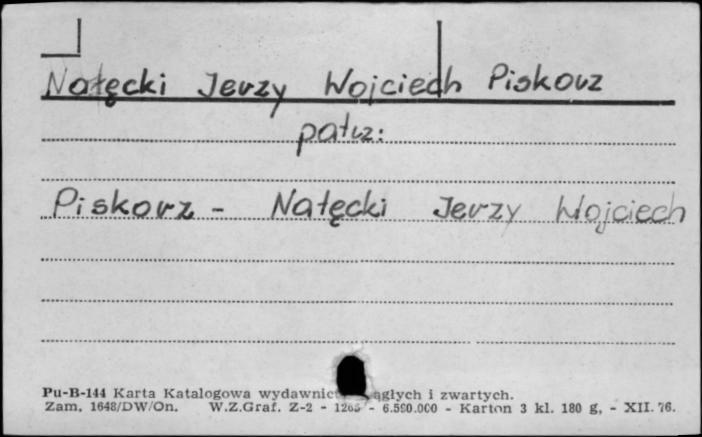 Nałęcki Jerzy Wojciech Piskorz
patrz:
Piskorz - Nałęcki Jerzy Wojciech
Pu-B-144 Karta Katalogowa wydawnict ągłych i zwartych.
Zam. 1648/DW/On. W.Z.Graf. Z-2 - 1265 - 6.590.000 - Karton 3 kl. 180 g, - XII. 76.